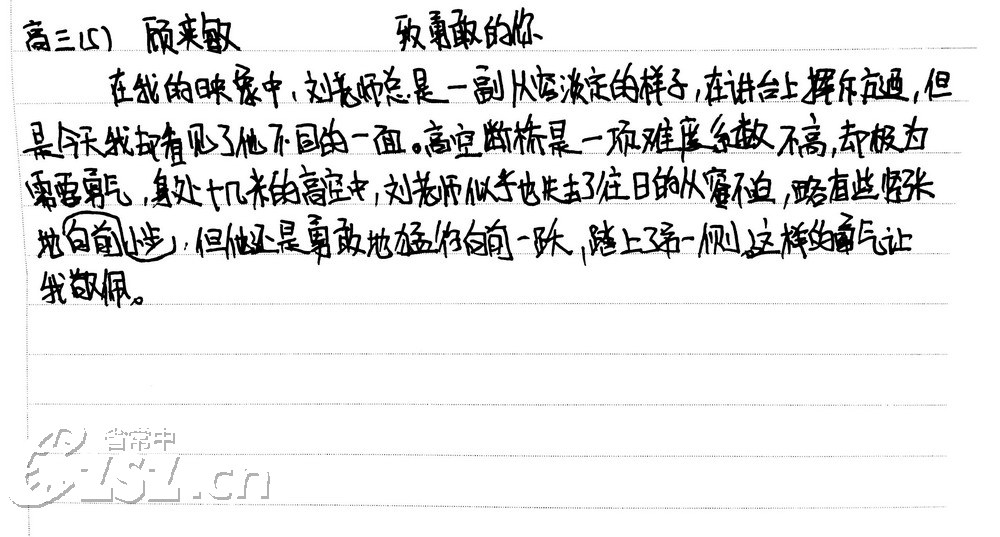 高三(5) 顾来敏 致勇敢的你
在我的映象中,刘老师总是一副从容淡定的样子,在讲台上挥斥方遒,但
是今天我却看见了他不同的一面。高空断桥是一项难度系数不高,却极为
需要勇气,身处十几米的高空中,刘老师似乎也失去了往日的从容不迫,略有些紧张
地向前小步,但他还是勇敢地猛得向前一跃,踏上了另一侧。这样的勇气让
我敬佩。
省常中
CZSZ.cn